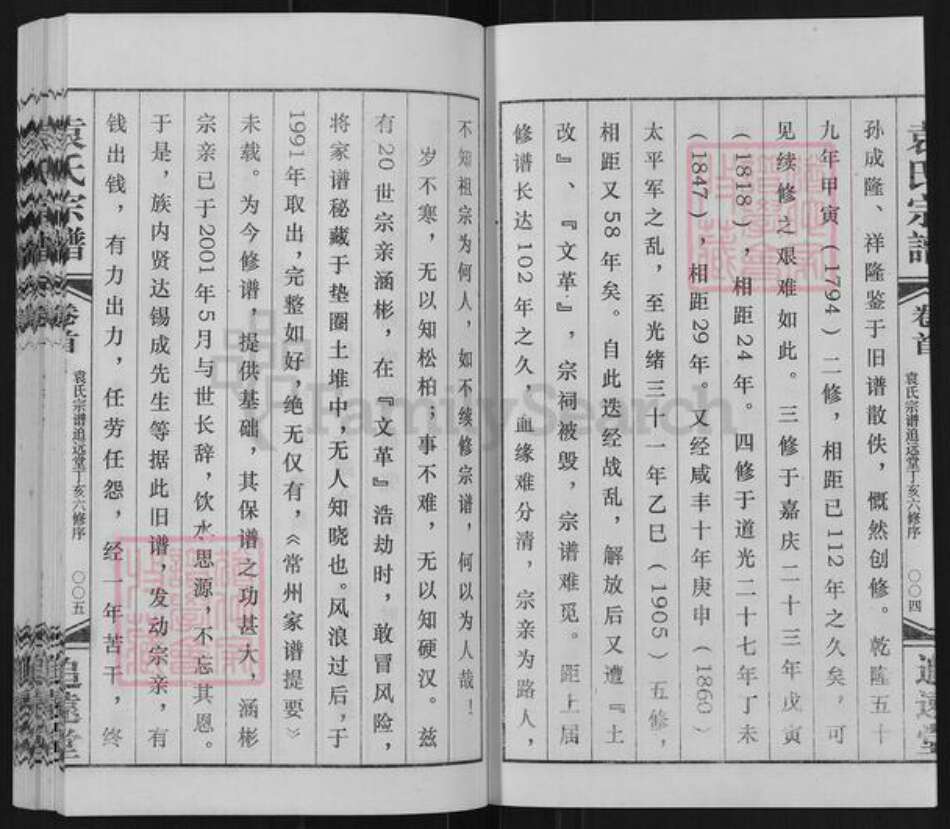 袁氏宗谱 卷首 袁氏宗谱追远堂丁亥六修序 〇〇四 追远堂
孙成隆、祥隆鉴于旧谱散佚，慨然创修。乾隆五十
九年甲寅（1794）二修，相距已112年之久矣，可
见续修之艰难如此。三修于嘉庆二十三年戊寅
（1818），相距24年。四修于道光二十七年丁未
（1847），相距29年。又经咸丰十年庚申（1860）
太平军之乱，至光绪三十一年乙巳（1905）五修，
相距又58年矣。自此迭经战乱，解放后又遭『土
改』、『文革』，宗祠被毁，宗谱难觅。距上届
修谱长达102年之久，血缘难分清，宗亲为路人，
不知祖宗为何人，如不续修宗谱，何以为人哉！
岁不寒，无以知松柏；事不难，无以知硬汉。兹
有20世宗亲涵彬，在『文革』浩劫时，敢冒风险，
将家谱秘藏于垫圈土堆中，无人知晓也。风浪过后，于
1991年取出，完整如好，绝无仅有，《常州家谱提要》
未载。为今修谱，提供基础，其保谱之功甚大，涵彬
宗亲已于2001年5月与世长辞，饮水思源，不忘其恩。
于是，族内贤达锡成先生等据此旧谱，发动宗亲，有
钱出钱，有力出力，任劳任怨，经一年苦干，终
袁氏宗谱 卷首 袁氏宗谱追远堂丁亥六修序 〇〇五 追远堂
FamilySearch